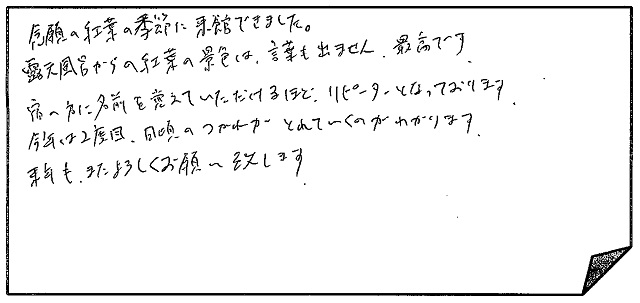 念願の紅葉の季節に来館できました。
露天風呂からの紅葉の景色は、言葉も出ません、最高です
宿の方に名前を覚えていただけるほど、リピーターとなっております。
今年は2度目、日頃のつかれがとれていくのがわかります。
来年も、またよろしくお願い致します